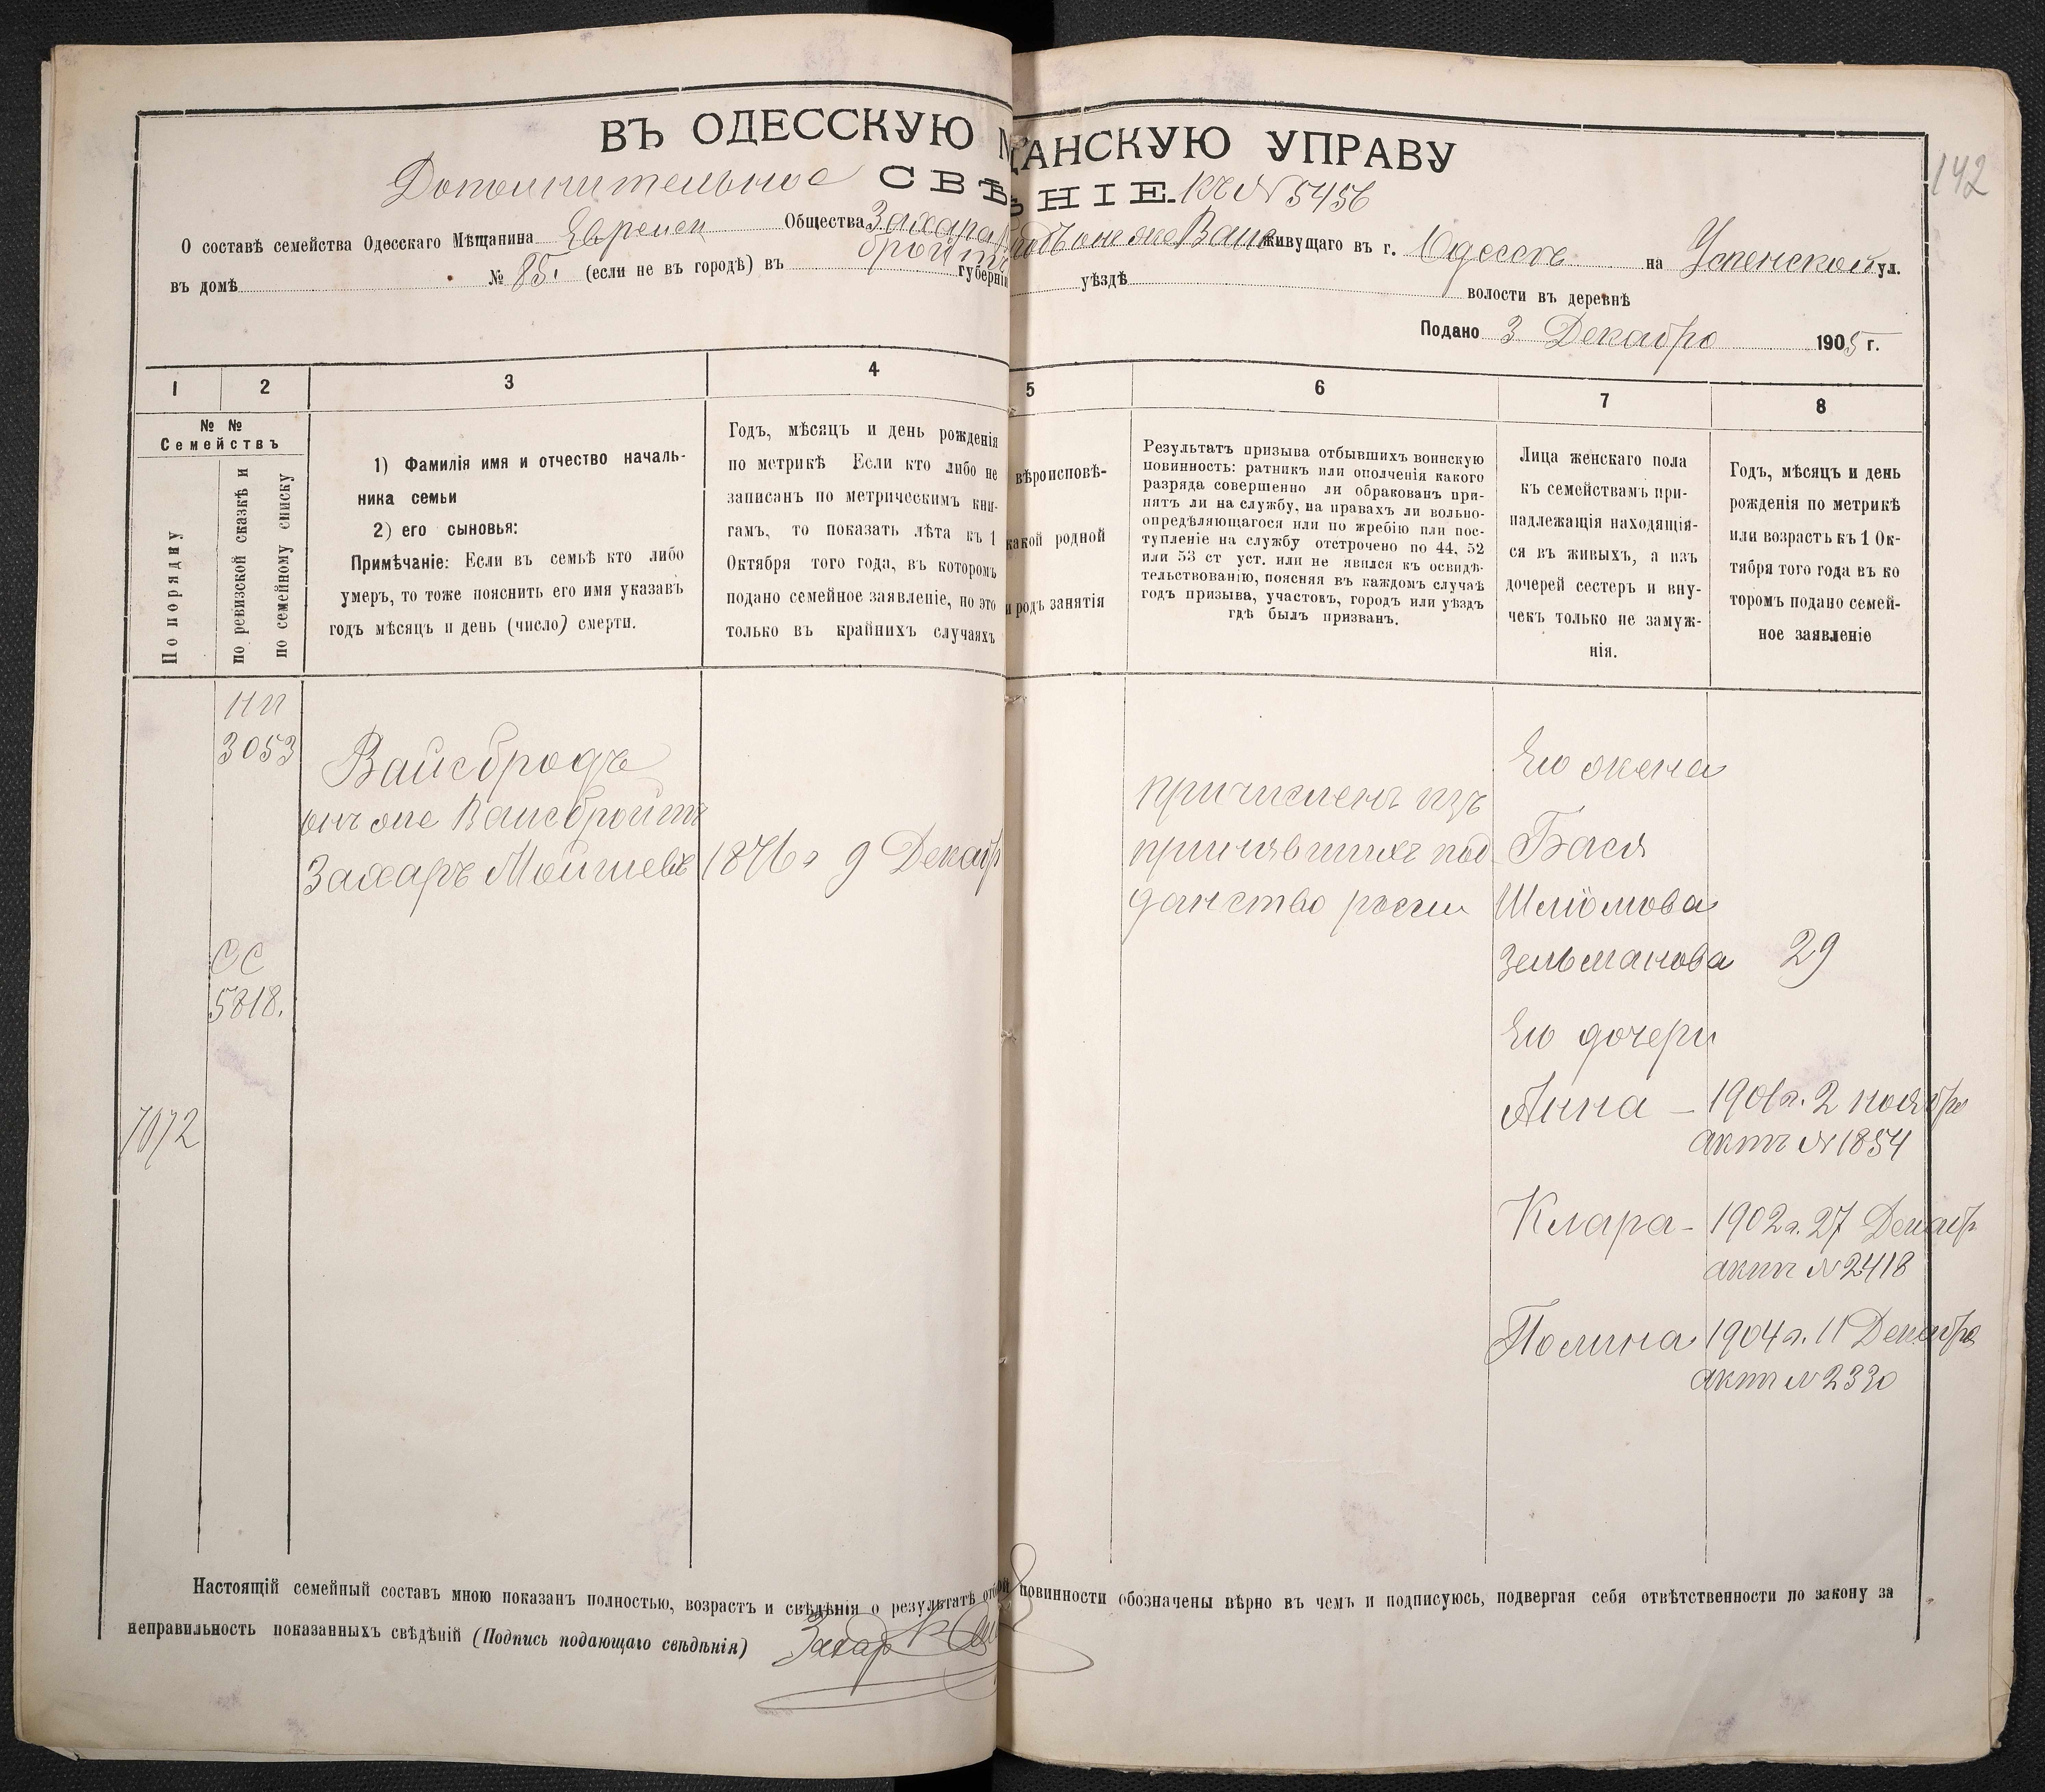 ВЪ ОДЕССКУЮ М ЩАНСКУЮ УПРАВУ
142
Дополнительное СВѢ НІЕ. къ N 5456
О составѣ семейства Одесскаго Мѣщанина Евреец Общества Захара онъ же Вайс живущаго въ г. Одессѣ на Успенской ул.
бройтъ
въ домѣ № 85. (если не въ городѣ) въ губерніи уѣздѣ волости въ деревнѣ
Подано 3 Декабря 1905 г.
1 2 3 4 5 6 7 8
№ № Семействъ
По порядку
по ревизской сказкѣ и
по семейному списку
1) Фамилія имя и отчество началь-
ника семьи
2) его сыновья:
Примѣчаніе: Если въ семьѣ кто либо
умеръ, то тоже пояснить его имя указавъ
годъ мѣсяцъ и день (число) смерти.
Годъ, мѣсяцъ и день рожденія
по метрикѣ Если кто либо не
записанъ по метрическимъ кни-
гамъ, то показать лѣта къ 1
Октября того года, въ которомъ
подано семейное заявленіе, но это
только въ крайнихъ случаяхъ
вѣроисповѣ-
какой родной
и родъ занятія
Результатъ призыва отбывшихъ воинскую
повинность: ратникъ или ополченія какого
разряда совершенно ли обракованъ при-
нятъ ли на службу, на правахъ ли вольно-
опредѣляющагося или по жребію или пос-
тупленіе на службу отсрочено по 44, 52
или 53 ст уст. или не явился къ освидѣ-
тельствованію, поясняя въ каждомъ случаѣ
годъ призыва, участокъ, городъ или уѣздъ
гдѣ былъ призванъ.
Лица женскаго пола
къ семействамъ при-
надлежащія находящій-
ся въ живыхъ, а изъ
дочерей сестеръ и вну-
чекъ только не замуж-
нія.
Годъ, мѣсяцъ и день
рожденія по метрикѣ
или возрастъ къ 1 Ок-
тября того года въ ко
торомъ подано семей-
ное заявленіе
3053
Вайсбродъ
онъ же Вайсбройтъ
Захаръ Мойшевъ 1876 г 9 Декабр
причисленъ изъ
принявшихъ под-
данство росси
Его жена
Бася
Шлiомова
Зельманова 29
СС
5818.
7072
Его дочери
Анна - 1901 г. 2 ноября
актъ N 1854
Клара - 1902 г. 27 Декабр
актъ N 2418
Полина 1904 г. 11 Декабря
актъ N 2330
Настоящій семейный составъ мною показанъ полностью, возрастъ и свѣдѣнія о результатѣ повинности обозначены вѣрно въ чемъ и подписуюсь, подвергая себя отвѣтственности по закону за
неправильность показанныхъ свѣдѣній (Подпись подающаго свѣдѣнія) Захар